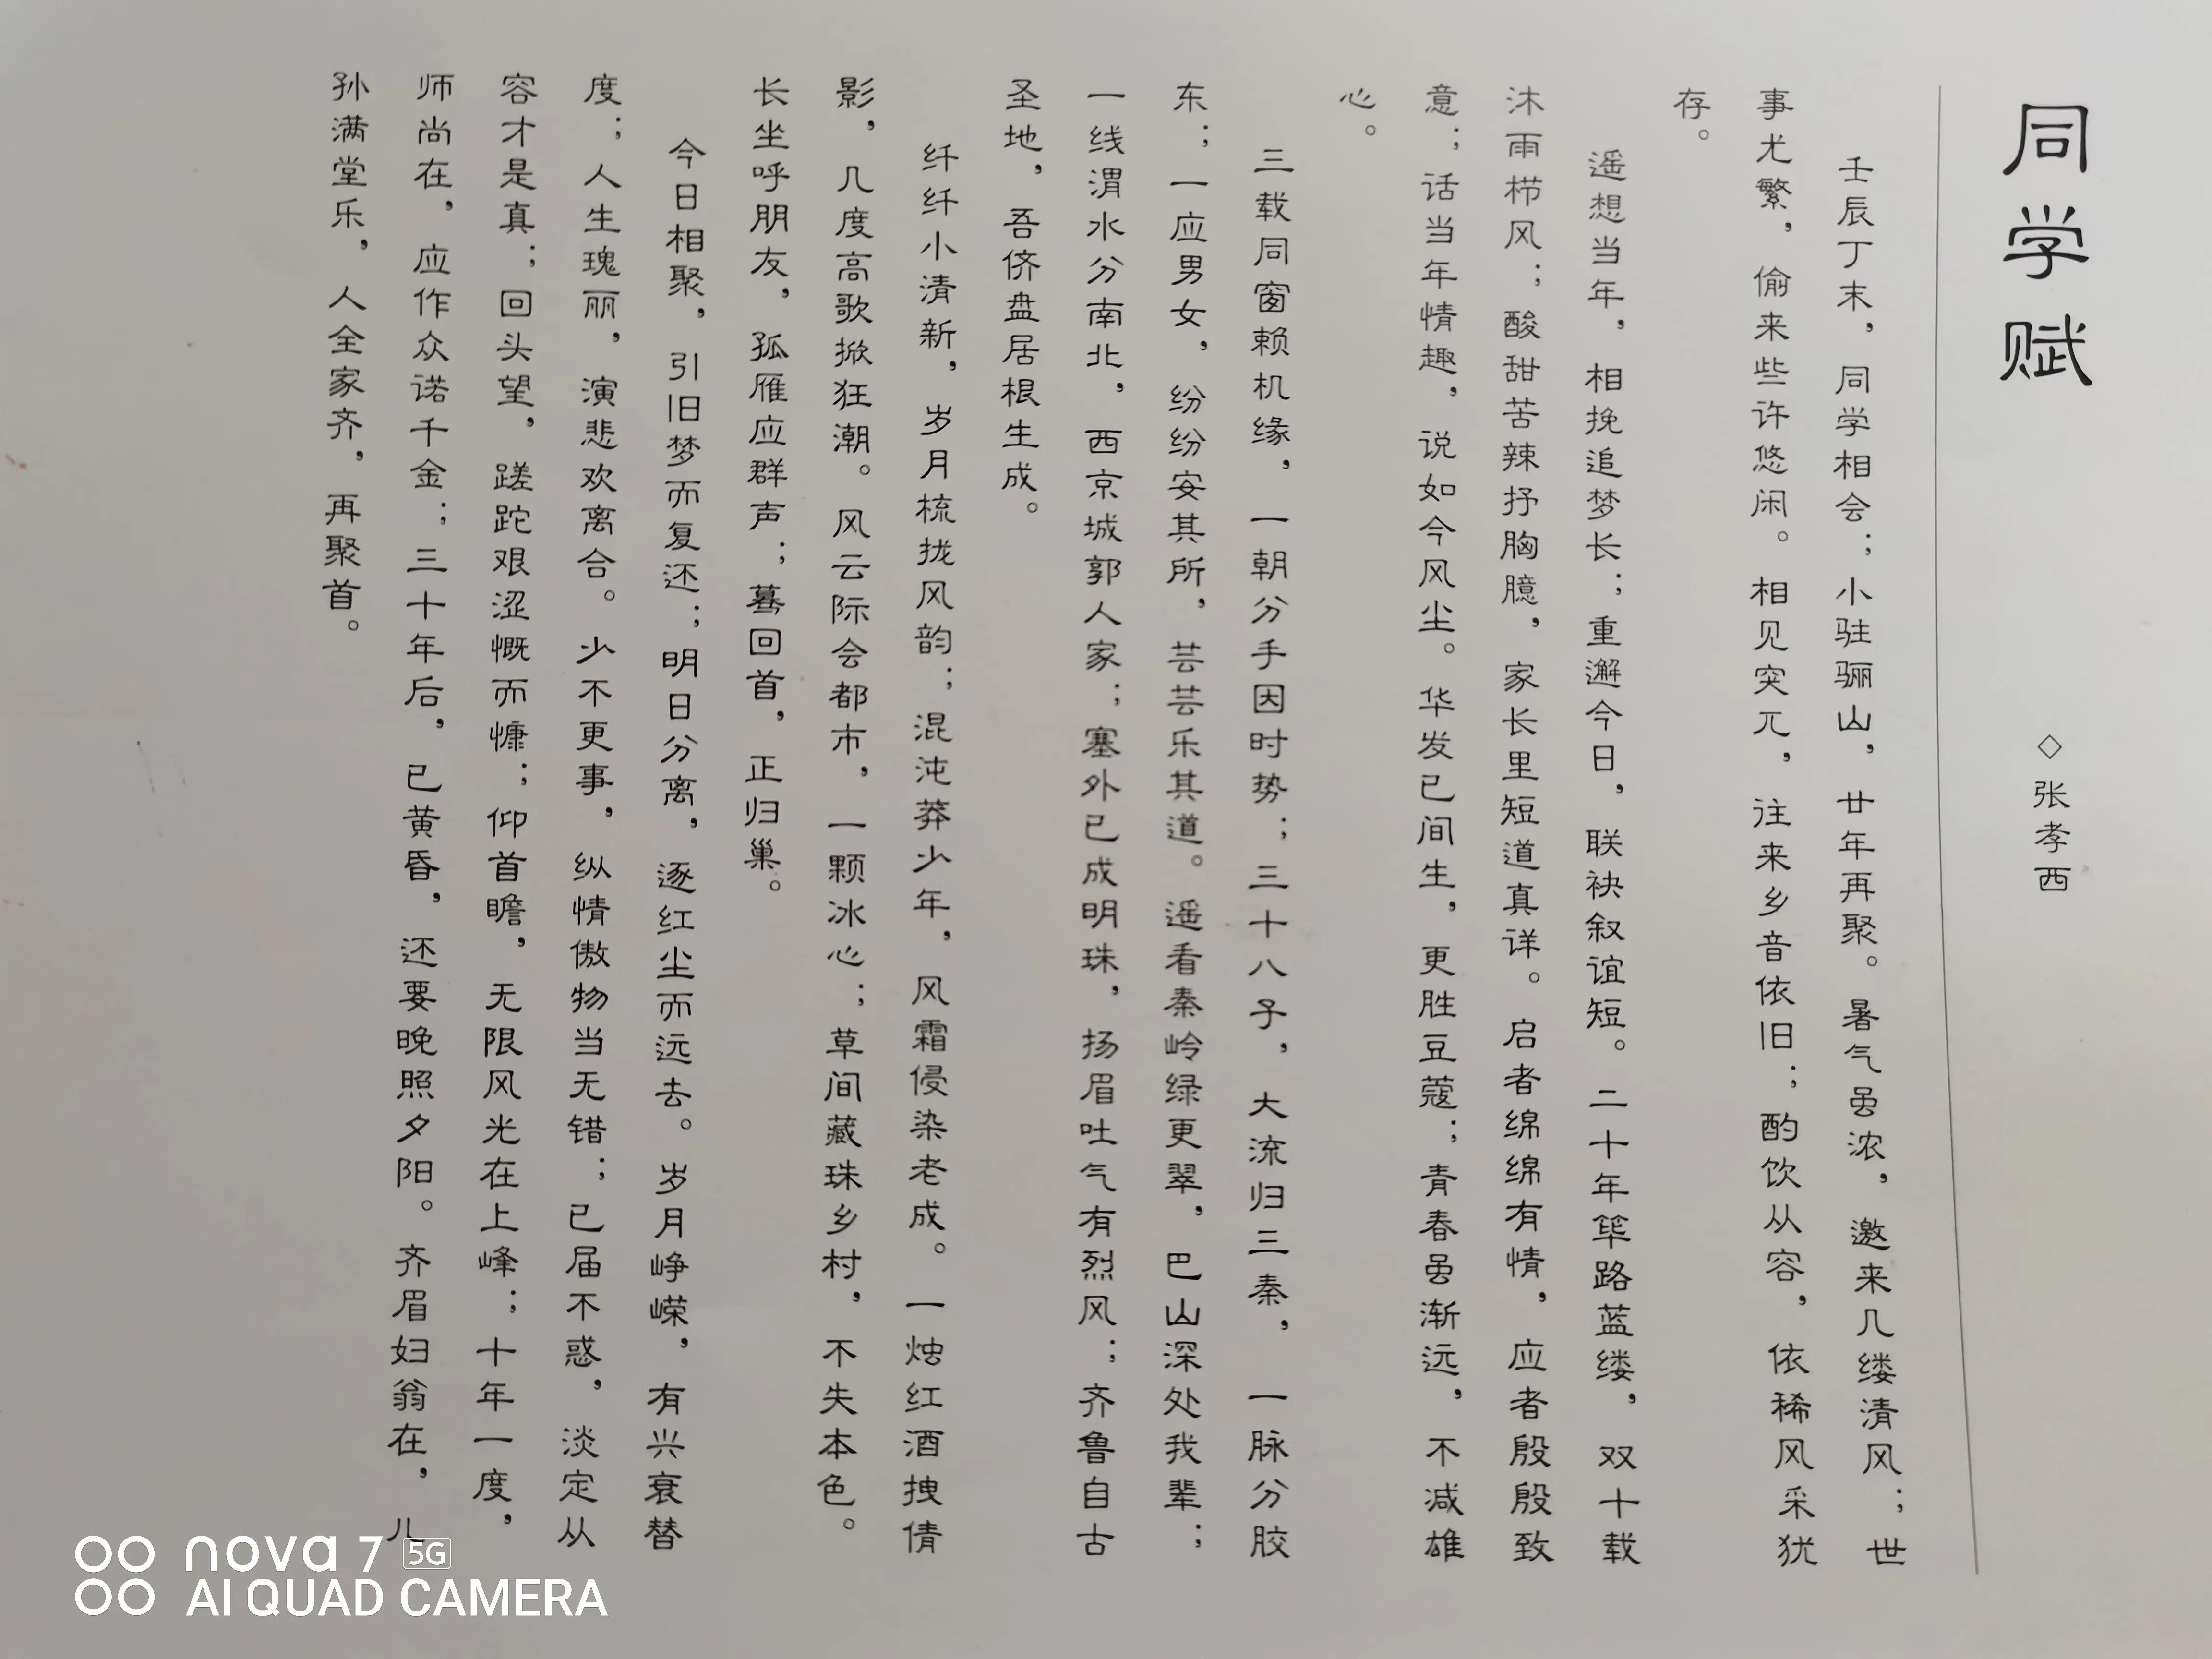 同学赋
◇张孝西
壬辰丁末，同学相会；小驻骊山，廿年再聚。暑气虽浓，邀来几缕清风；世
事尤繁，偷来些许悠闲。相见突兀，往来乡音依旧；酌饮从容，依稀风采犹
存。
遥想当年，相挽追梦长；重邂今日，联袂叙谊短。二十年筚路蓝缕，双十载
沐雨栉风；酸甜苦辣抒胸臆，家长里短道真详。启者绵绵有情，应者殷殷致
意；话当年情趣，说如今风尘。华发已间生，更胜豆蔻；青春虽渐远，不减雄
心。
三载同窗赖机缘，一朝分手因时势；三十八子，大流归三秦，一脉分胶
东；一应男女，纷纷安其所，芸芸乐其道。遥看秦岭绿更翠，巴山深处我辈；
一线渭水分南北，西京城郭人家；塞外已成明珠，扬眉吐气有烈风；齐鲁自古
圣地，吾侪盘居根生成。
纤纤小清新，岁月梳拢风韵；混沌莽少年，风霜侵染老成。一烛红酒拽倩
影，几度高歌掀狂潮。风云际会都市，一颗冰心；草间藏珠乡村，不失本色。
长坐呼朋友，孤雁应群声；蓦回首，正归巢。
今日相聚，引旧梦而复还；明日分离，逐红尘而远去。岁月峥嵘，有兴衰替
度；人生瑰丽，演悲欢离合。少不更事，纵情傲物当无错；已届不惑，淡定从
容才是真；回头望，蹉跎艰涩慨而慷；仰首瞻，无限风光在上峰；十年一度，
师尚在，应作众诺千金；三十年后，已黄昏，还要晚照夕阳。齐眉妇翁在，儿
孙满堂乐，人全家齐，再聚首。
nova 7 5G
AI QUAD CAMERA